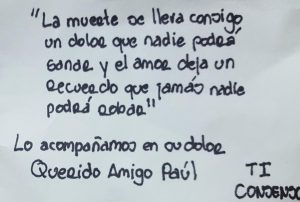 "La muerte se lleva consigo
un dolor que nadie podrá
sanar y el amor deja un
recuerdo que jamás nadie
podrá robar"
Lo acompañamos en su dolor
Querido Amigo Raúl
TI
CONSENSO